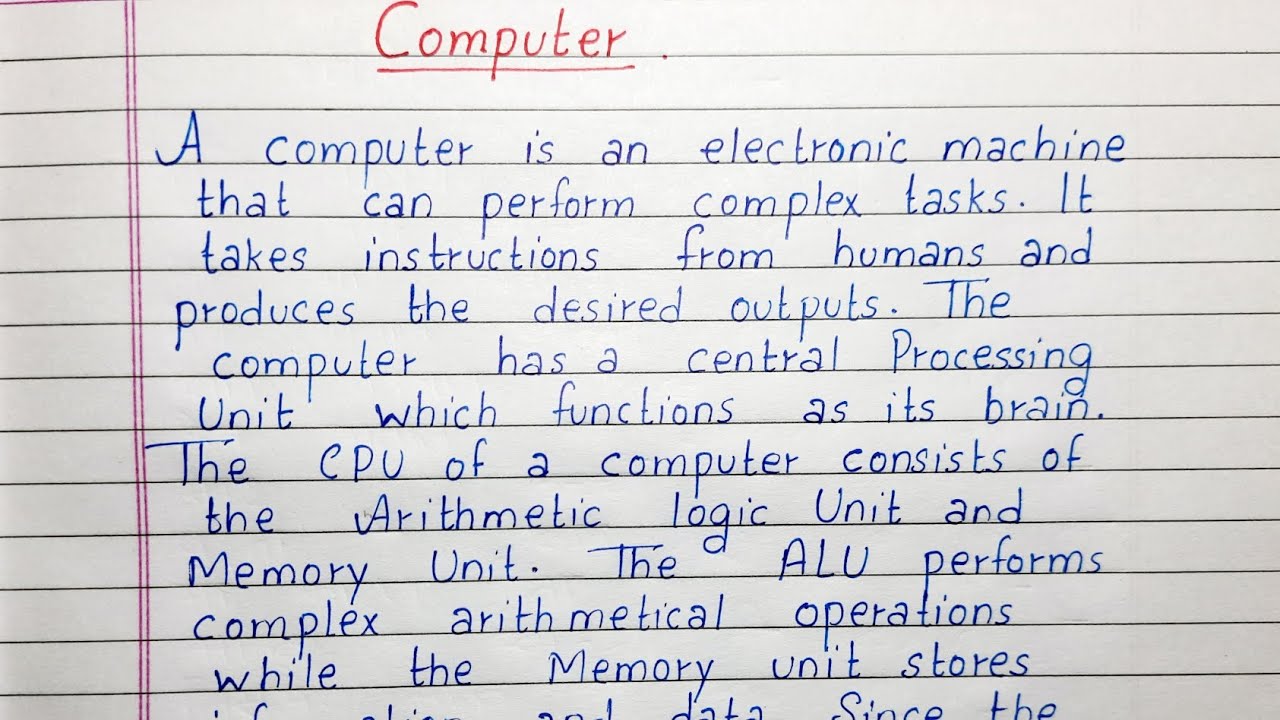 Computer.
A computer is an electronic machine
that can perform complex tasks. It
takes instructions from humans and
produces the desired outputs. The
computer has a central Processing
Unit which functions as its brain.
The CPU of a computer consists of
the Arithmetic logic Unit and
Memory Unit. The ALU performs
complex arithmetical operations
while the Memory unit stores
and data. Since the